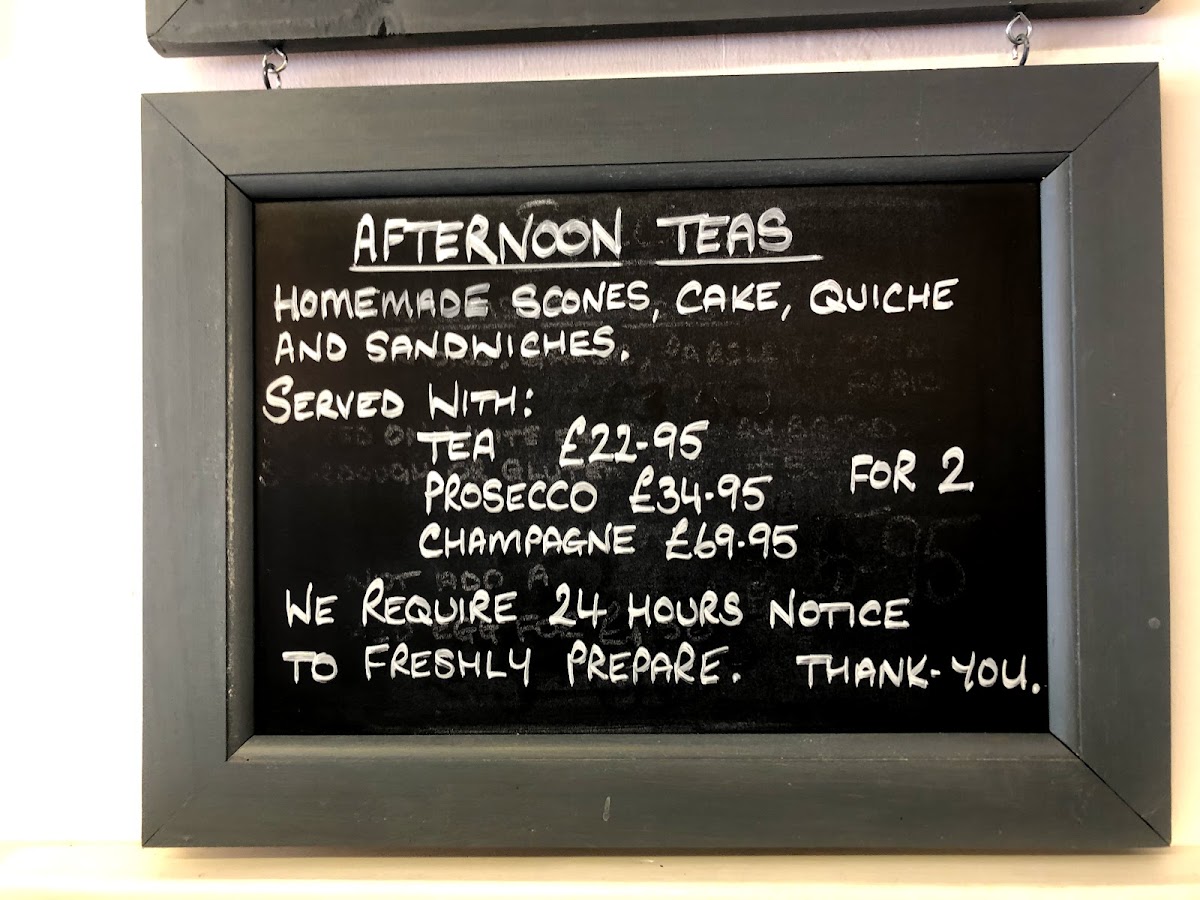 AFTERNOON TEAS
HOMEMADE SCONES, CAKE, QUICHE
AND SANDWICHES.
SERVED WITH:
TEA £22-95
PROSECCO £34.95
FOR 2
CHAMPAGNE £69.95
WE REQUIRE 24 HOURS NOTICE
TO FRESHLY PREPARE. THANK-YOU.